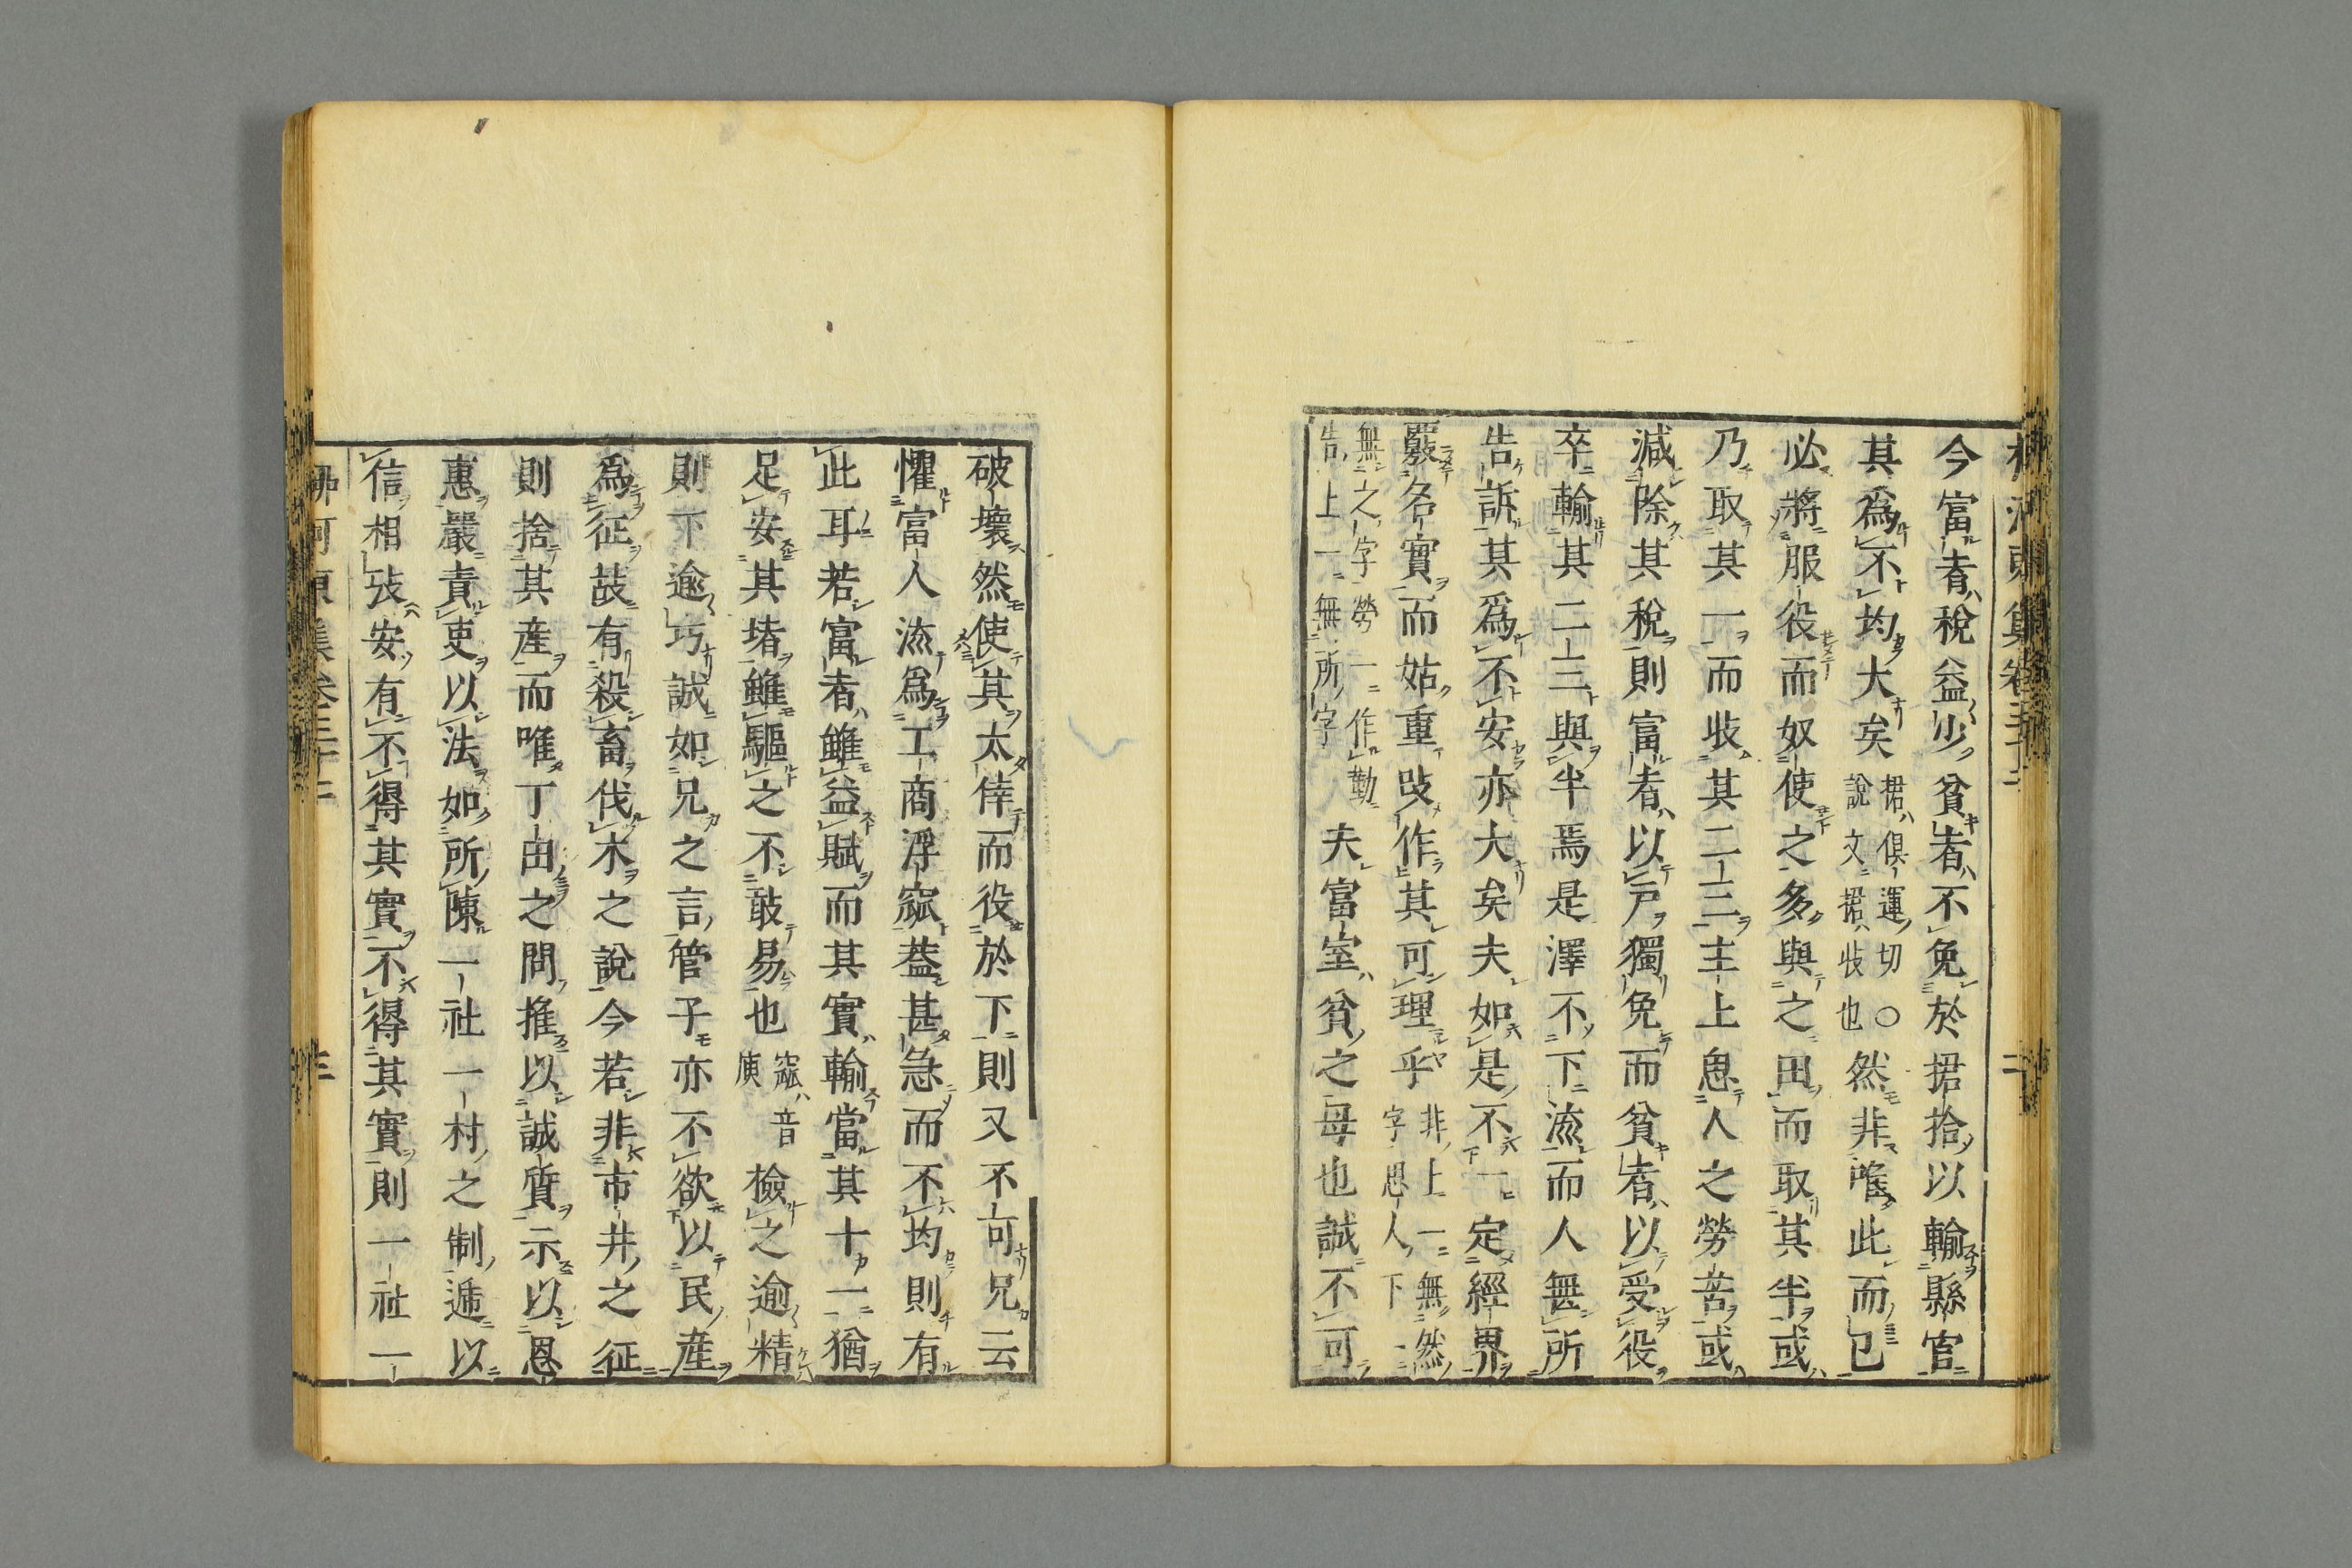 今富者稅益少貧者不免於捃拾以輸縣官
其爲不均大矣捃俱運切○說文捃收也然非唯此而已
必將服役而奴使之多與之田而取其半或
乃取其一而收其二三主上思人之勞苦或
減除其稅則富者以戸獨免而貧者以受役
卒輸其二三與半焉是澤不下流而人無所
告訴其爲不安亦大矣夫如是不一定經界
覈名實而姑重改作其可理乎非上一無然字思人下一
無之字勞一作勤告上一無所字夫富室貧之母也誠不可
破壞然使其太倖而役於下則又不可兄云
懼富人流爲工商浮窳蓋甚急而不均則有
此耳若富者雖益賦而其實輸當其十一猶
足安其堵雖驅之不敢易也窳音庾檢之逾精
則下逾巧誠如兄之言管子亦不欲以民產
爲征故有殺畜伐木之說今若非市井之征
則捨其產而唯丁田之問推以誠質示以恩
惠嚴責吏以法如所陳一社一村之制遞以
信相攷安有不得其實不得其實則一社一
柳河東集卷三十二